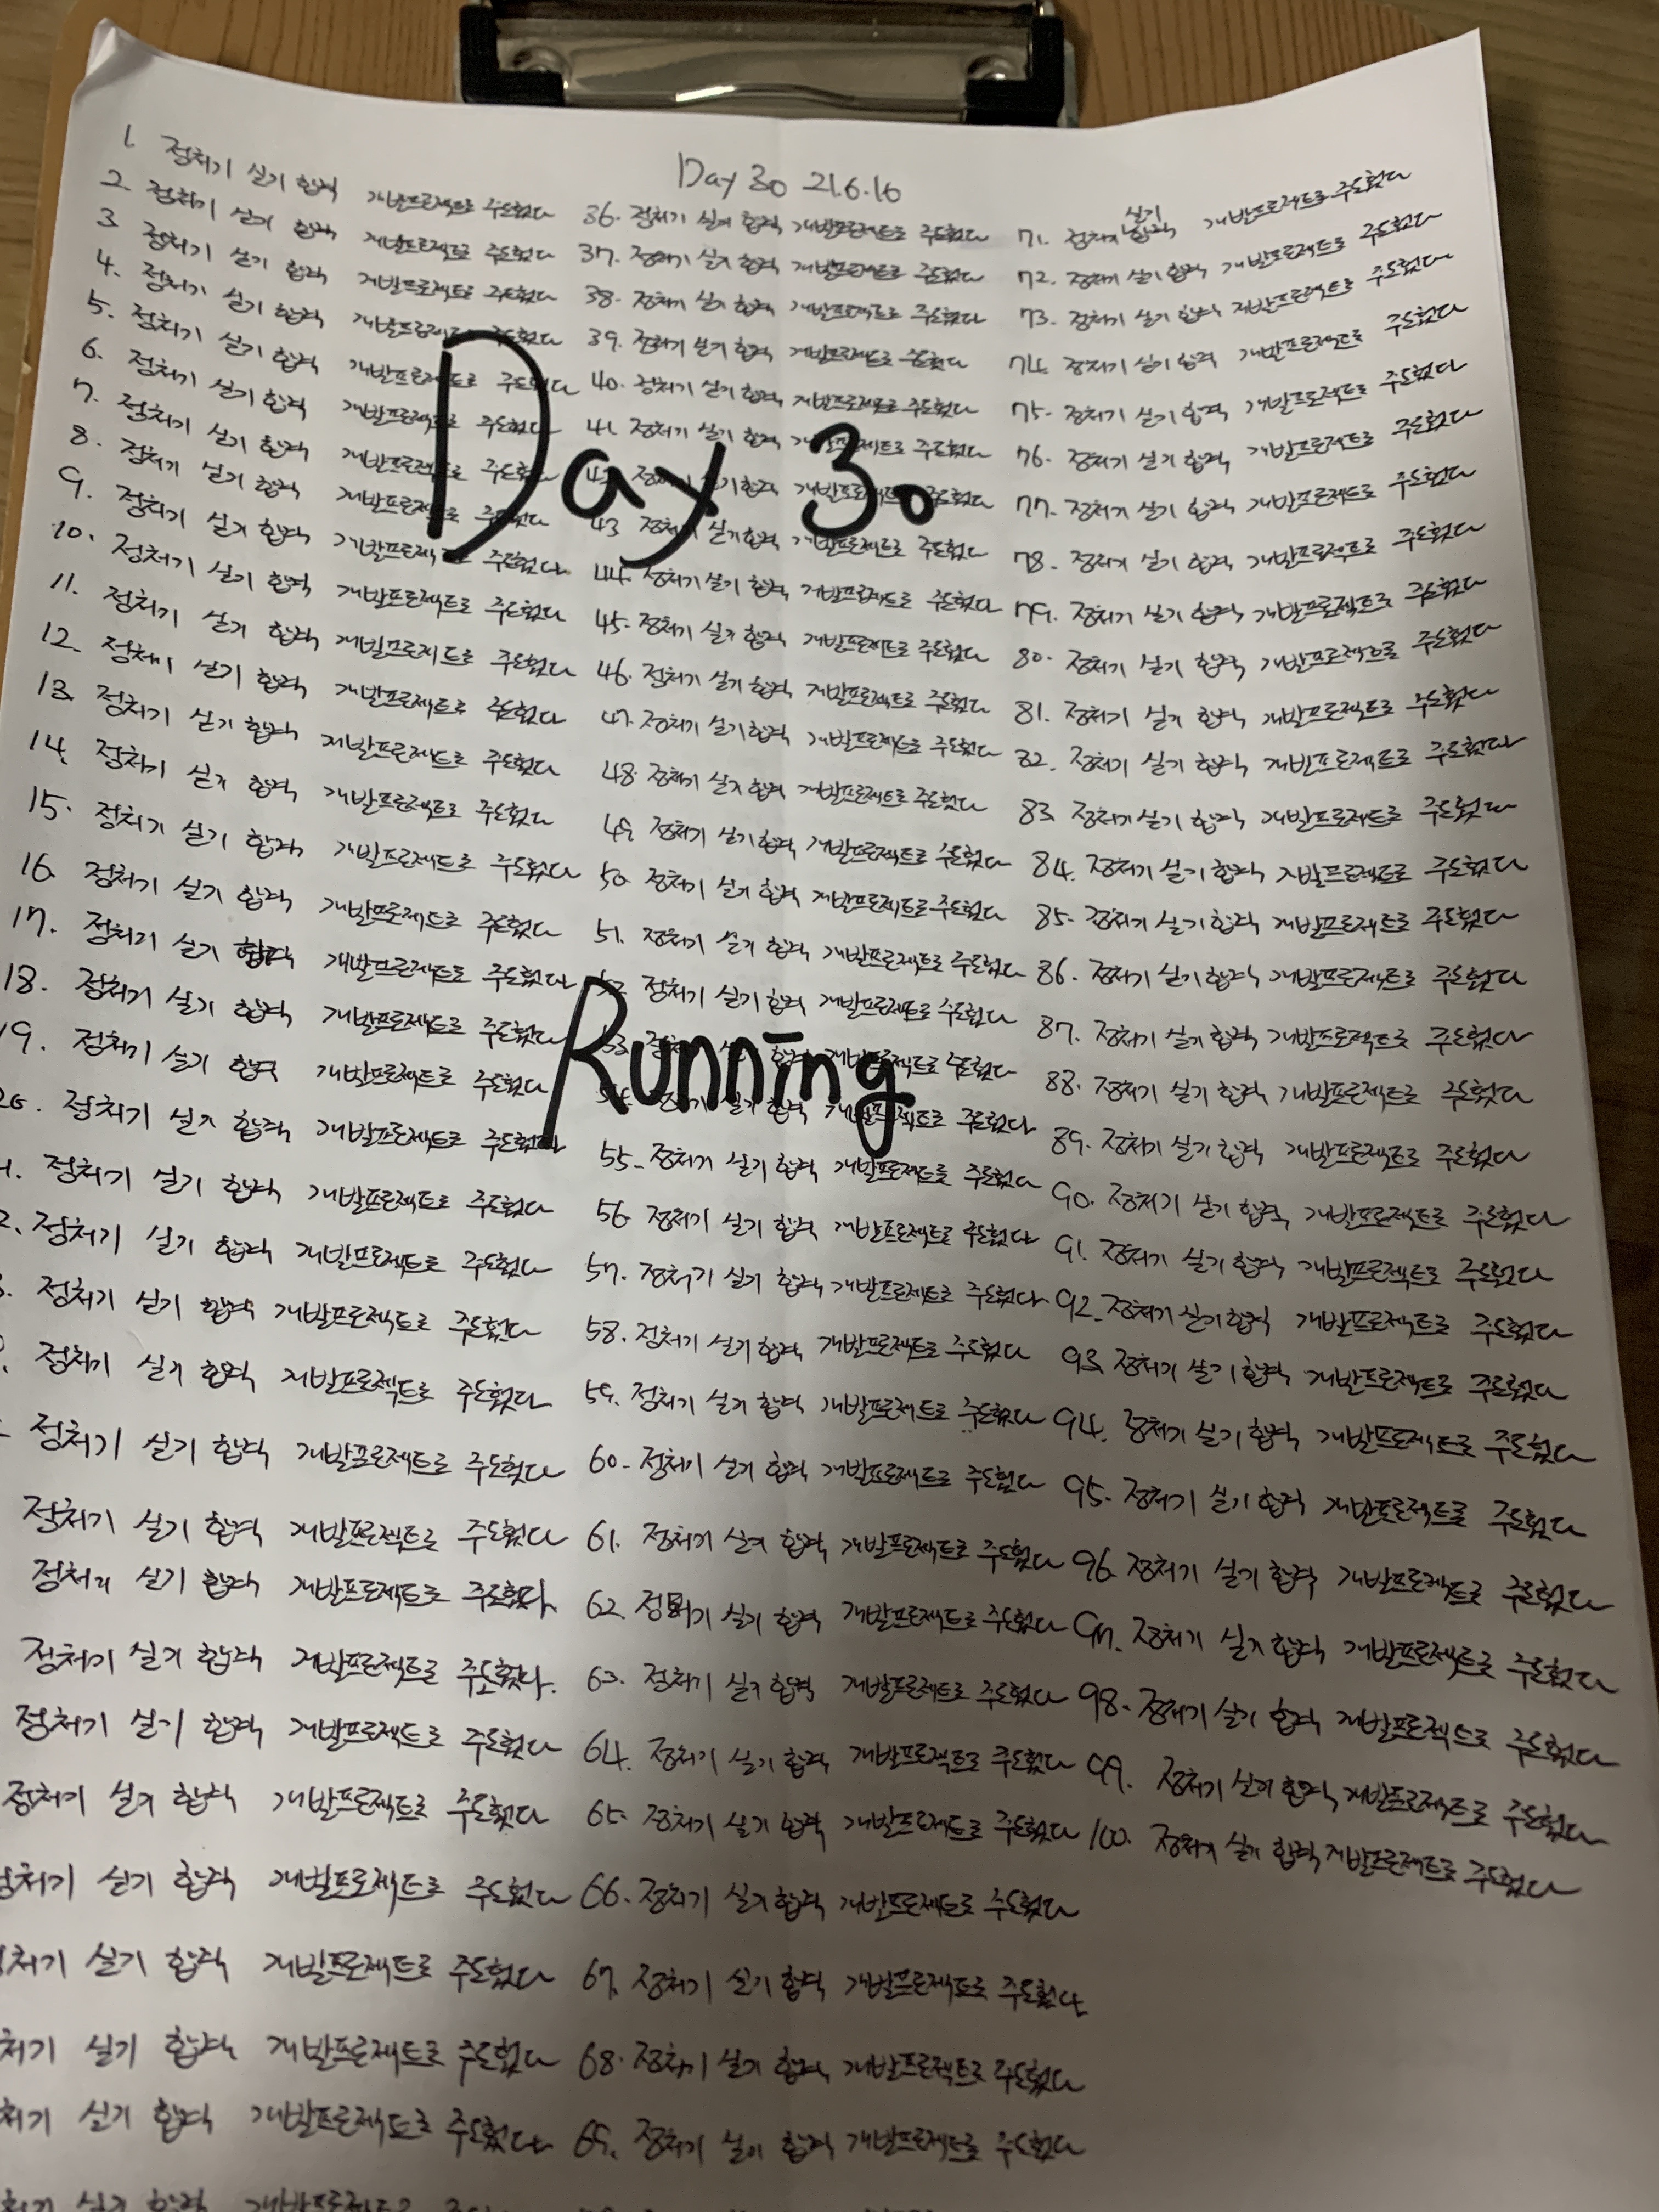 Day 30 21.6.16
1. 정처기 실기 합격 개발프로젝트로 주도했다
2. 정처기 실기 합격 개발프로젝트로 주도했다
3. 정처기 실기 합격 개발프로젝트로 주도했다
4. 정처기 실기 합격 개발프로젝트로 주도했다
5. 정처기 실기 합격 개발프로젝트로 주도했다
6. 정처기 실기 합격 개발프로젝트로 주도했다
7. 정처기 실기 합격 개발프로젝트로 주도했다
8. 정처기 실기 합격 개발프로젝트로 주도했다
9. 정처기 실기 합격 개발프로젝트로 주도했다
10. 정처기 실기 합격 개발프로젝트로 주도했다
11. 정처기 실기 합격 개발프로젝트로 주도했다
12. 정처기 실기 합격 개발프로젝트로 주도했다
13. 정처기 실기 합격 개발프로젝트로 주도했다
14. 정처기 실기 합격 개발프로젝트로 주도했다
15. 정처기 실기 합격 개발프로젝트로 주도했다
16. 정처기 실기 합격 개발프로젝트로 주도했다
17. 정처기 실기 합격 개발프로젝트로 주도했다
18. 정처기 실기 합격 개발프로젝트로 주도했다
19. 정처기 실기 합격 개발프로젝트로 주도했다
20. 정처기 실기 합격 개발프로젝트로 주도했다
1. 정처기 실기 합격 개발프로젝트로 주도했다
2. 정처기 실기 합격 개발프로젝트로 주도했다
3. 정처기 실기 합격 개발프로젝트로 주도했다
정처기 실기 합격 개발프로젝트로 주도했다
정처기 실기 합격 개발프로젝트로 주도했다
정처기 실기 합격 개발프로젝트로 주도했다
정처기 실기 합격 개발프로젝트로 주도했다.
정처기 실기 합격 개발프로젝트로 주도했다.
정처기 실기 합격 개발프로젝트로 주도했다
정처기 실기 합격 개발프로젝트로 주도했다
정처기 실기 합격 개발프로젝트로 주도했다
처기 실기 합격 개발프로젝트로 주도했다
처기 실기 합격 개발프로젝트로 주도했다
처기 실기 합격 개발프로젝트로 주도했다
36. 정처기 실기 합격 개발프로젝트로 주도했다
37. 정처기 실기 합격 개발프로젝트로 주도했다
38. 정처기 실기 합격 개발프로젝트로 주도했다
39. 정처기 실기 합격 개발프로젝트로 주도했다
40. 정처기 실기 합격 개발프로젝트로 주도했다
41. 정처기 실기 합격 개발프로젝트로 주도했다
42. 정처기 실기 합격 개발프로젝트로 주도했다
43. 정처기 실기 합격 개발프로젝트로 주도했다
44. 정처기 실기 합격 개발프로젝트로 주도했다
45. 정처기 실기 합격 개발프로젝트로 주도했다
46. 정처기 실기 합격 개발프로젝트로 주도했다
47. 정처기 실기 합격 개발프로젝트로 주도했다
48. 정처기 실기 합격 개발프로젝트로 주도했다
49. 정처기 실기 합격 개발프로젝트로 주도했다
50. 정처기 실기 합격 개발프로젝트로 주도했다
51. 정처기 실기 합격 개발프로젝트로 주도했다
52. 정처기 실기 합격 개발프로젝트로 주도했다
53. 정처기 실기 합격 개발프로젝트로 주도했다
54. 정처기 실기 합격 개발프로젝트로 주도했다
55. 정처기 실기 합격 개발프로젝트로 주도했다
56. 정처기 실기 합격 개발프로젝트로 주도했다
57. 정처기 실기 합격 개발프로젝트로 주도했다
58. 정처기 실기 합격 개발프로젝트로 주도했다
59. 정처기 실기 합격 개발프로젝트로 주도했다
60. 정처기 실기 합격 개발프로젝트로 주도했다
61. 정처기 실기 합격 개발프로젝트로 주도했다
62. 정처기 실기 합격 개발프로젝트로 주도했다
63. 정처기 실기 합격 개발프로젝트로 주도했다
64. 정처기 실기 합격 개발프로젝트로 주도했다
65. 정처기 실기 합격 개발프로젝트로 주도했다
66. 정처기 실기 합격 개발프로젝트로 주도했다
67. 정처기 실기 합격 개발프로젝트로 주도했다
68. 정처기 실기 합격 개발프로젝트로 주도했다
69. 정처기 실기 합격 개발프로젝트로 주도했다
71. 정처기 실기 합격 개발프로젝트로 주도했다
72. 정처기 실기 합격 개발프로젝트로 주도했다
73. 정처기 실기 합격 개발프로젝트로 주도했다
74. 정처기 실기 합격 개발프로젝트로 주도했다
75. 정처기 실기 합격 개발프로젝트로 주도했다
76. 정처기 실기 합격 개발프로젝트로 주도했다
77. 정처기 실기 합격 개발프로젝트로 주도했다
78. 정처기 실기 합격 개발프로젝트로 주도했다
79. 정처기 실기 합격 개발프로젝트로 주도했다
80. 정처기 실기 합격 개발프로젝트로 주도했다
81. 정처기 실기 합격 개발프로젝트로 주도했다
82. 정처기 실기 합격 개발프로젝트로 주도했다
83. 정처기 실기 합격 개발프로젝트로 주도했다
84. 정처기 실기 합격 개발프로젝트로 주도했다
85. 정처기 실기 합격 개발프로젝트로 주도했다
86. 정처기 실기 합격 개발프로젝트로 주도했다
87. 정처기 실기 합격 개발프로젝트로 주도했다
88. 정처기 실기 합격 개발프로젝트로 주도했다
89. 정처기 실기 합격 개발프로젝트로 주도했다
90. 정처기 실기 합격 개발프로젝트로 주도했다
91. 정처기 실기 합격 개발프로젝트로 주도했다
92. 정처기 실기 합격 개발프로젝트로 주도했다
93. 정처기 실기 합격 개발프로젝트로 주도했다
94. 정처기 실기 합격 개발프로젝트로 주도했다
95. 정처기 실기 합격 개발프로젝트로 주도했다
96. 정처기 실기 합격 개발프로젝트로 주도했다
97. 정처기 실기 합격 개발프로젝트로 주도했다
98. 정처기 실기 합격 개발프로젝트로 주도했다
99. 정처기 실기 합격 개발프로젝트로 주도했다
100. 정처기 실기 합격 개발프로젝트로 주도했다
Day 30
Running